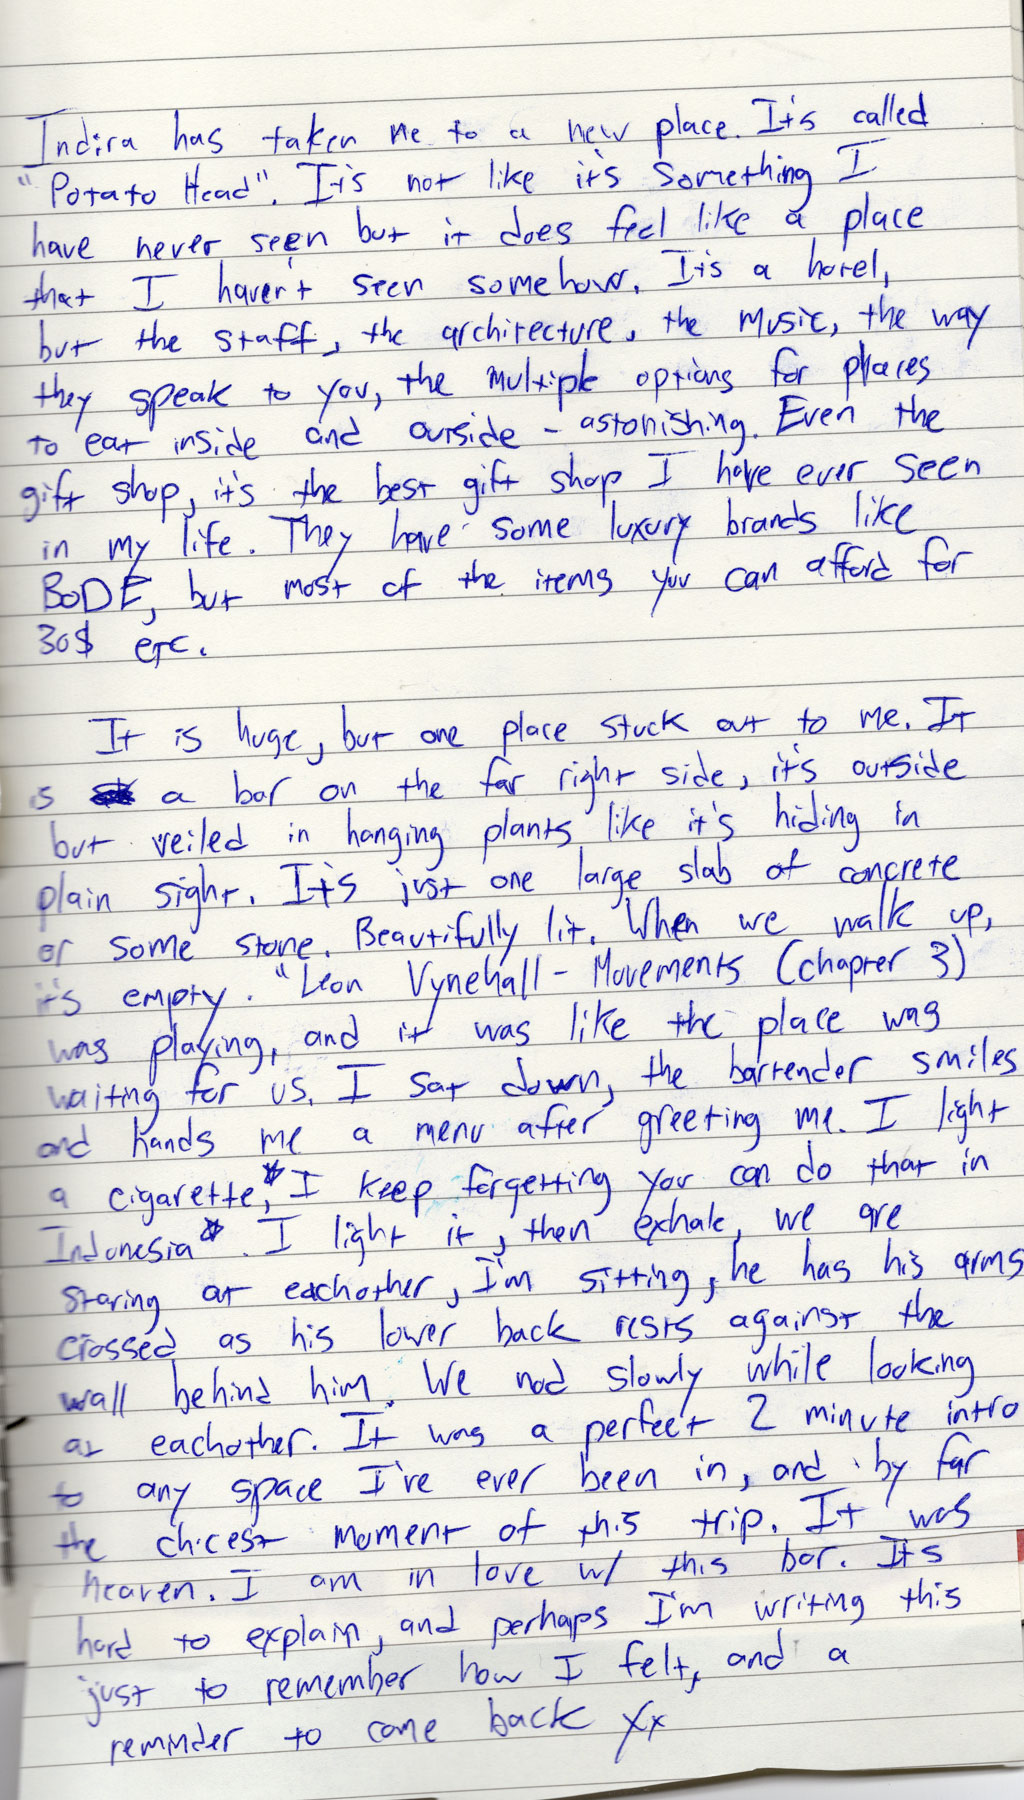 Indira has taken me to a new place. It's called
"Potato Head". It's not like it's something I
have never seen but it does feel like a place
that I haven't seen somehow. It's a hotel,
but the staff, the architecture, the music, the way
they speak to you, the multiple options for places
to eat inside and outside - astonishing. Even the
gift shop, it's the best gift shop I have ever seen
in my life. They have some luxury brands like
BODE, but most of the items you can afford for
30$ etc.
It is huge, but one place stuck out to me. It
is a bar on the far right side, it's outside
but veiled in hanging plants like it's hiding in
plain sight. It's just one large slab of concrete
or some stone. Beautifully lit. When we walk up,
it's empty. "Leon Vynehall - Movements (chapter 3)
was playing, and it was like the place was
waiting for us. I sat down, the bartender smiles
and hands me a menu after greeting me. I light
a cigarette,* I keep forgetting you can do that in
Indonesia*. I light it, then exhale, we are
staring at eachother, I'm sitting, he has his arms
crossed as his lower back rests against the
wall behind him. We nod slowly while looking
at eachother. It was a perfect 2 minute intro
to any space I've ever been in, and by far
the chicest moment of this trip. It was
heaven. I am in love w/ this bar. Its
hard to explain, and perhaps I'm writing this
just to remember how I felt, and a
reminder to come back xx